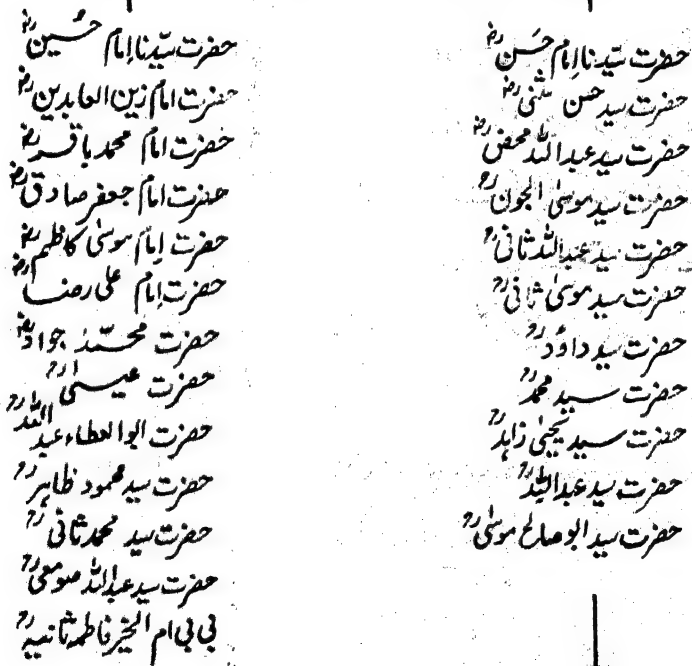 حضرت سیّدنا اِمام حَسن رضؓ
حضرت سید حسن مثنی رضؓ
حضرت سید عبداللہ محض رضؓ
حضرت سید موسیٰ الجون رحؒ
حضرت سید عبداللہ ثانی رحؒ
حضرت سید موسیٰ ثانی رحؒ
حضرت سید داؤد رحؒ
حضرت سید محمد رحؒ
حضرت سید یحییٰ زاہد رحؒ
حضرت سید عبداللہ رحؒ
حضرت سید ابو صالح موسیٰ رحؒ
حضرت سیّدنا اِمام حُسین رضؓ
حضرت امام زین العابدین رضؓ
حضرت امام محمد باقر رضؓ
حضرت امام جعفر صادق رضؓ
حضرت اِمام موسیٰ کاظم رضؓ
حضرت اِمام علی رضا رضؓ
حضرت محمّد جواد رضؓ
حضرت عیسیٰ رحؒ
حضرت ابوالعطاء عبداللہ رحؒ
حضرت سید محمود طاہر رحؒ
حضرت سید محمد ثانی رحؒ
حضرت سید عبداللہ صومعی رحؒ
بی بی ام الخیر فاطمہ ثانیہ رحؒ